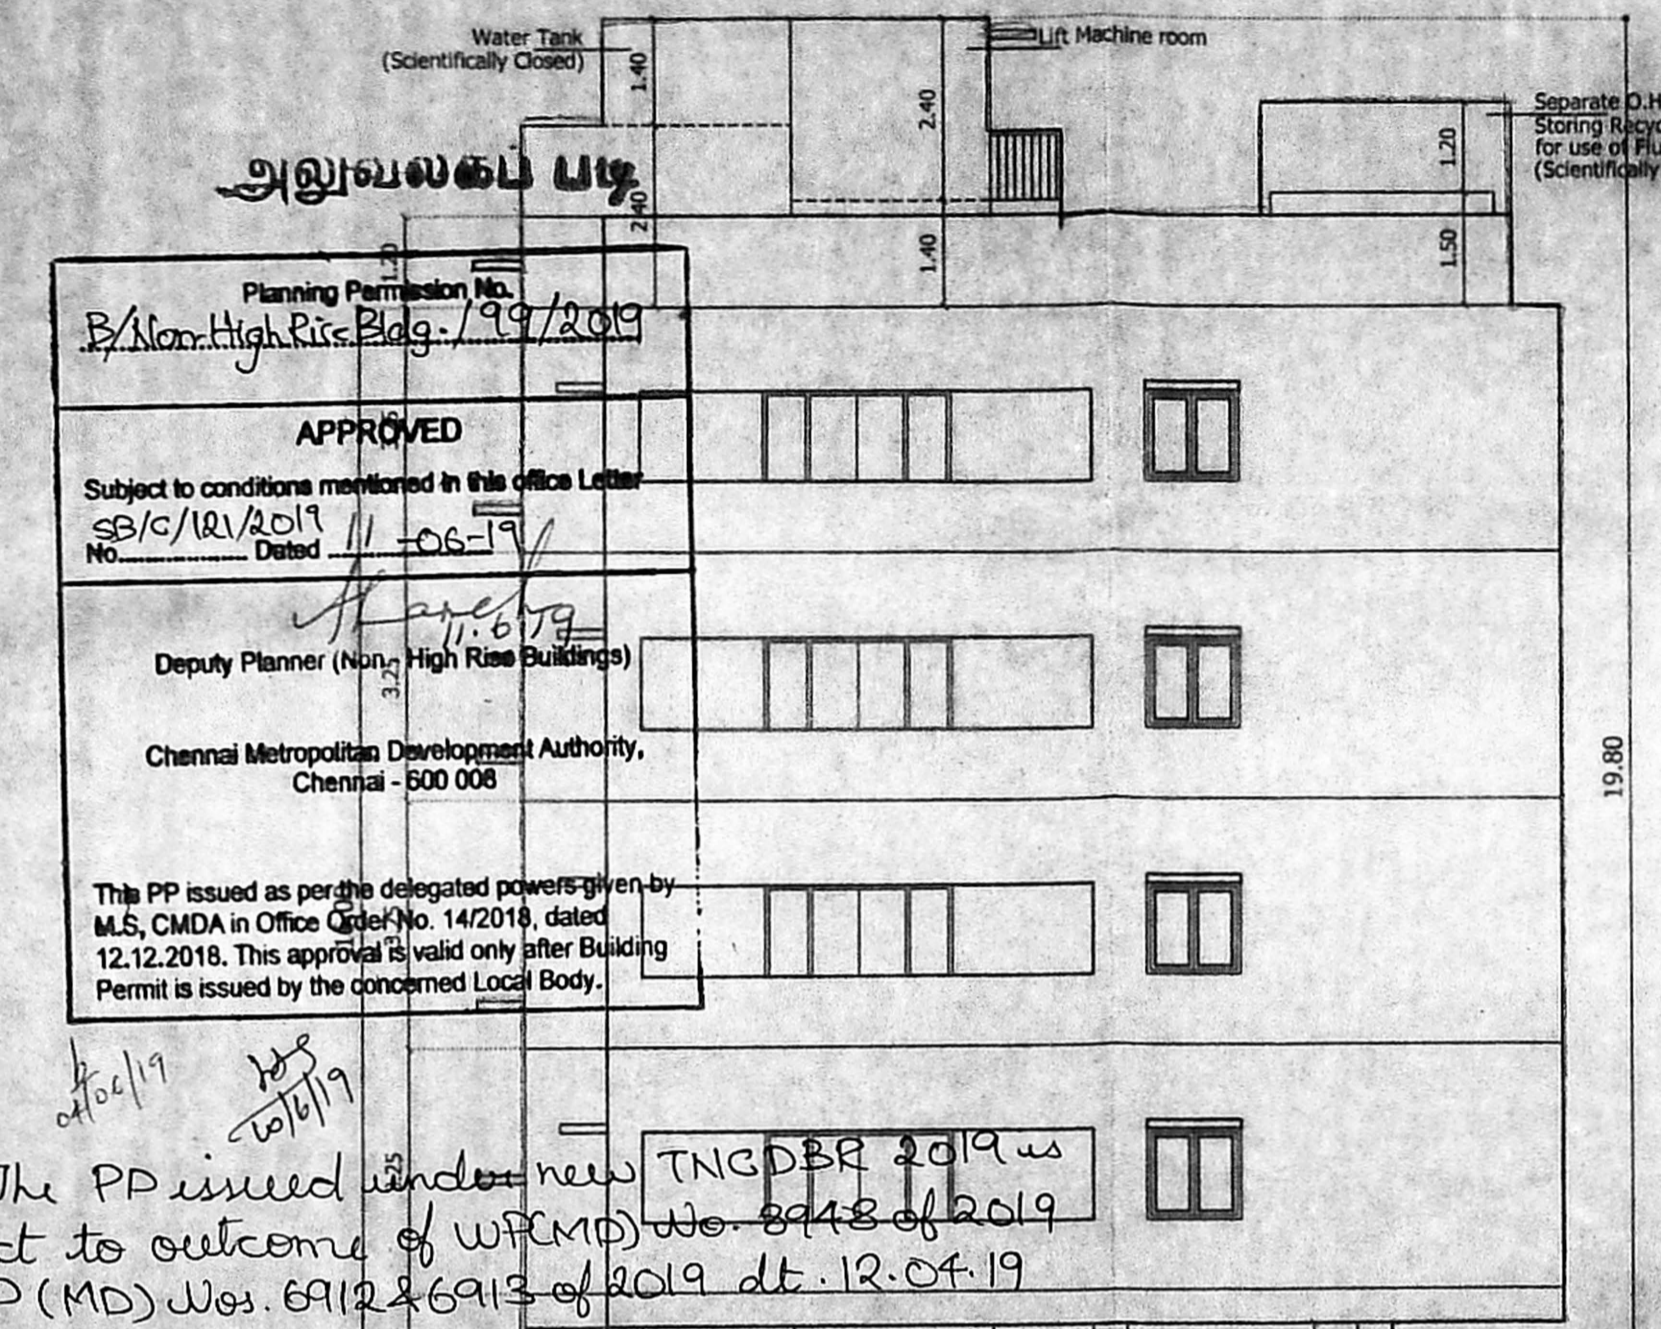 Water Tank
(Scientifically Closed)
Lift Machine room
Separate O.H
Storing Recyc
for use of Flu
(Scientifically
1.40
2.40
1.20
அலுவலகப் படி
2.40
1.40
1.50
1.20
Planning Permission No.
B/Non-High Rise Bldg./99/2019
APPROVED
Subject to conditions mentioned in this office Letter
SB/C/121/2019
No. Dated 11-06-19
11.6.19
Deputy Planner (Non- High Rise Buildings)
3.25
Chennai Metropolitan Development Authority,
Chennai - 600 008
19.80
This PP issued as per the delegated powers given by
M.S, CMDA in Office Order No. 14/2018, dated
12.12.2018. This approval is valid only after Building
Permit is issued by the concerned Local Body.
10/6/19
The PP issued under new TNCDBR 2019 is
ct to outcome of WP(MD) No. 8948 of 2019
P (MD) Nos. 6912 & 6913 of 2019 dt. 12.04.19